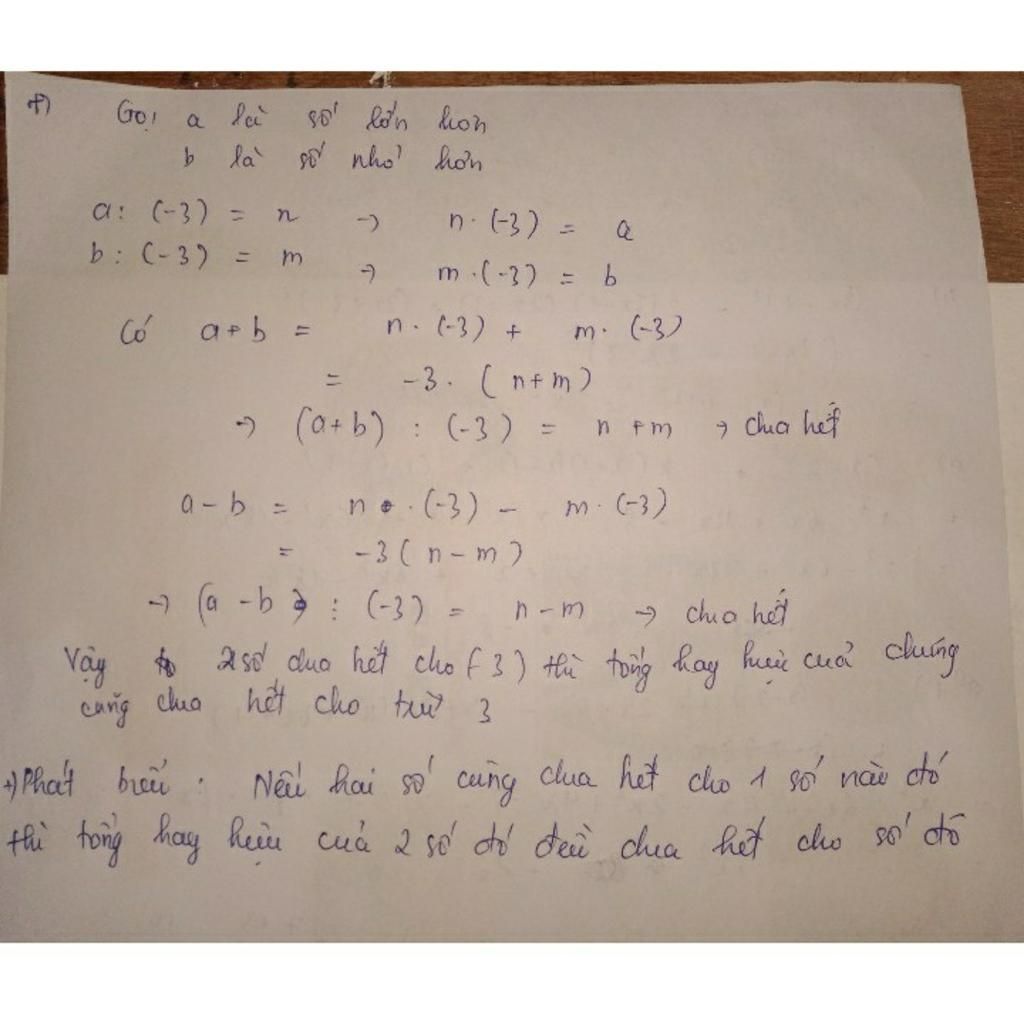 +) Gọi a là số lớn hơn
b là số nhỏ hơn
a : (-3) = n → n · (-3) = a
b : (-3) = m → m · (-3) = b
Có a + b = n · (-3) + m · (-3)
= -3 · (n+m)
→ (a+b) : (-3) = n + m → chia hết
a - b = n · (-3) - m · (-3)
= -3 (n - m)
→ (a - b) : (-3) = n - m → chia hết
Vậy 2 số chia hết cho (-3) thì tổng hay hiệu cuả chúng
cũng chia hết cho trừ 3
+) Phát biểu : Nếu hai số cùng chia hết cho 1 số nào đó
thì tổng hay hiệu cuả 2 số đó đều chia hết cho số đó